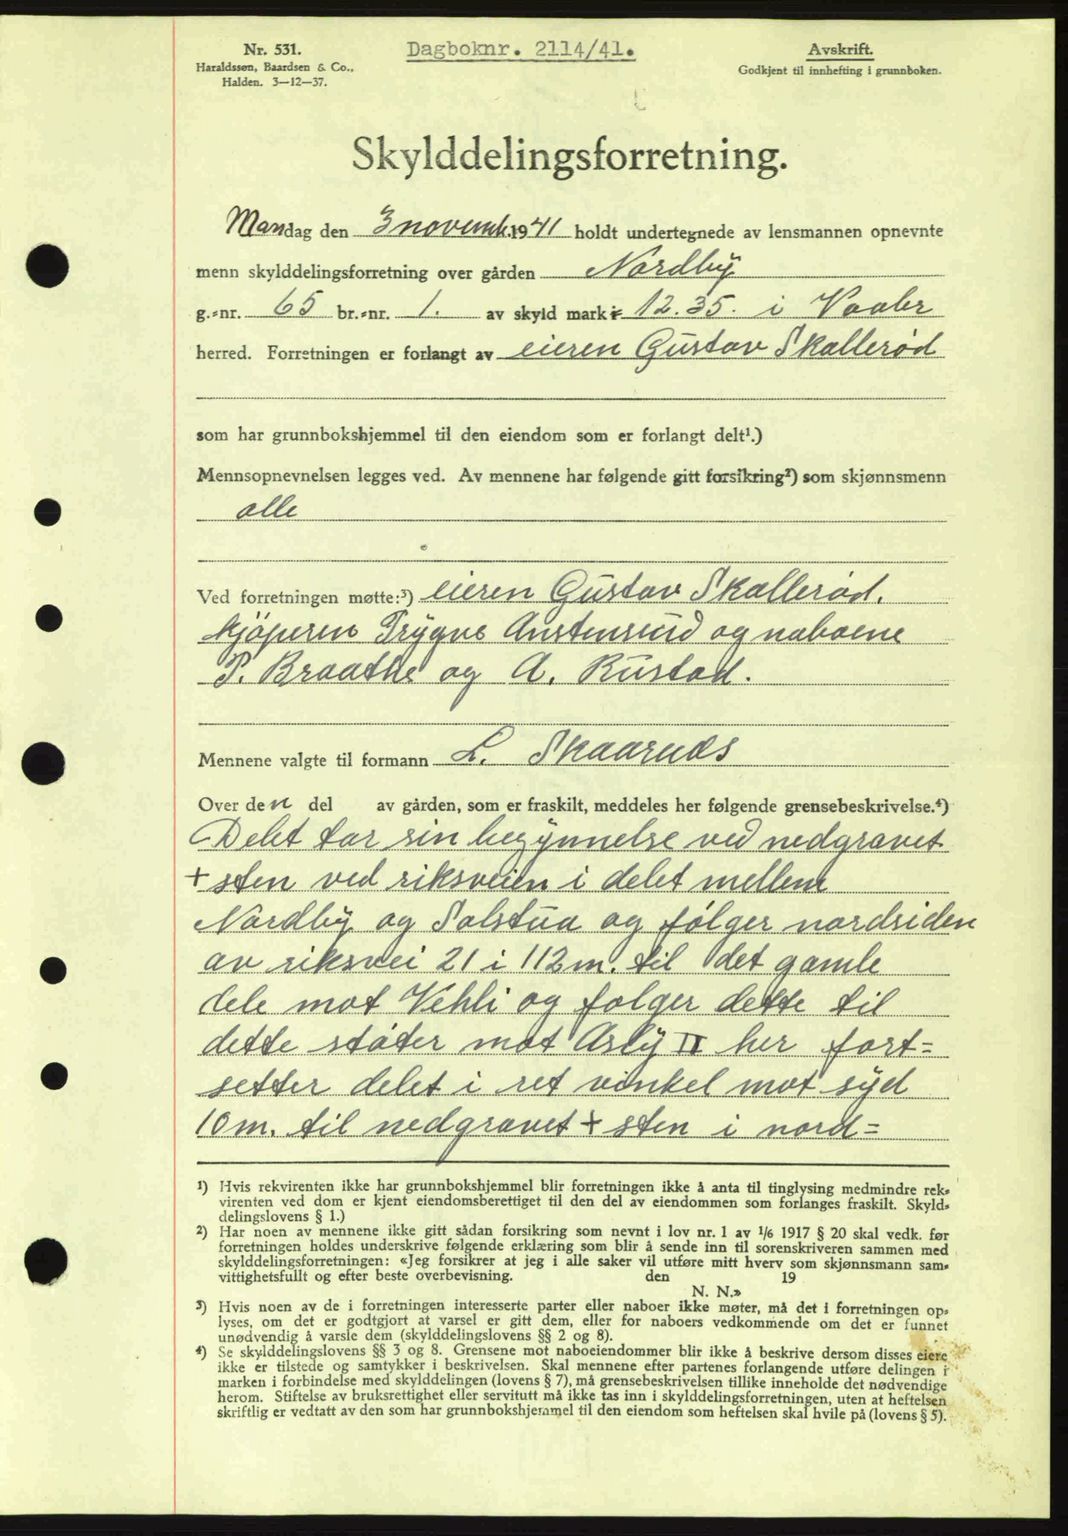 Nr. 531.
Haraldssøn, Baardsen & Co.,
Halden. 3—12—37.
Dagboknr. 2114/41.
Avskrift.
Godkjent til innhefting i grunnboken.
Skylddelingsforretning.
Mandag den 3 novemb. 1941 holdt undertegnede av lensmannen opnevnte
menn skylddelingsforretning over gården Nordby
g.-nr. 65 br.-nr. 1. av skyld mark 12.35. i Vaaler
herred. Forretningen er forlangt av eieren Gustav Skallerød
som har grunnbokshjemmel til den eiendom som er forlangt delt¹.)
Mennsopnevnelsen legges ved. Av mennene har følgende gitt forsikring²) som skjønnsmenn
alle
Ved forretningen møtte:³) eieren Gustav Skallerød.
kjöperen Trygve Anstensrud og naboene
P. Braathe og A. Rustad.
Mennene valgte til formann L. Skaaruds
Over den del av gården, som er fraskilt, meddeles her følgende grensebeskrivelse.⁴)
Delet tar sin begynnelse ved nedgravet
+ sten ved riksveien i delet mellem
Nordby og Solstua og følger nordsiden
av riksvei 21 i 112 m. til det gamle
dele mot Vehli og følger dette til
dette støter mot Åsly II her fort=
setter delet i ret vinkel mot syd
10 m. til nedgravet + sten i nord=
¹) Hvis rekvirenten ikke har grunnbokshjemmel blir forretningen ikke å anta til tinglysing medmindre rek-
virenten ved dom er kjent eiendomsberettiget til den del av eiendommen som forlanges fraskilt. Skyld-
delingslovens § 1.)
²) Har noen av mennene ikke gitt sådan forsikring som nevnt i lov nr. 1 av 1/6 1917 § 20 skal vedk. før
forretningen holdes underskrive følgende erklæring som blir å sende inn til sorenskriveren sammen med
skylddelingsforretningen: «Jeg forsikrer at jeg i alle saker vil utføre mitt hverv som skjønnsmann sam-
vittighetsfullt og efter beste overbevisning. den 19
N. N.»
³) Hvis noen av de i forretningen interesserte parter eller naboer ikke møter, må det i forretningen op-
lyses, om det er godtgjort at varsel er gitt dem, eller for naboers vedkommende om det er funnet
unødvendig å varsle dem (skylddelingslovens §§ 2 og 8).
⁴) Se skylddelingslovens §§ 3 og 8. Grensene mot naboeiendommer blir ikke å beskrive dersom disses eiere
ikke er tilstede og samtykker i beskrivelsen. Skal mennene efter partenes forlangende utføre delingen i
marken i forbindelse med skylddelingen (lovens § 7), må grensebeskrivelsen tillike inneholde det nødvendige
herom. Stiftelse av bruksrettighet eller servitutt må ikke tas inn i skylddelingsforretningen, uten at heftelsen
skriftlig er vedtatt av den som har grunnbokshjemmel til den eiendom som heftelsen skal hvile på (lovens § 5).